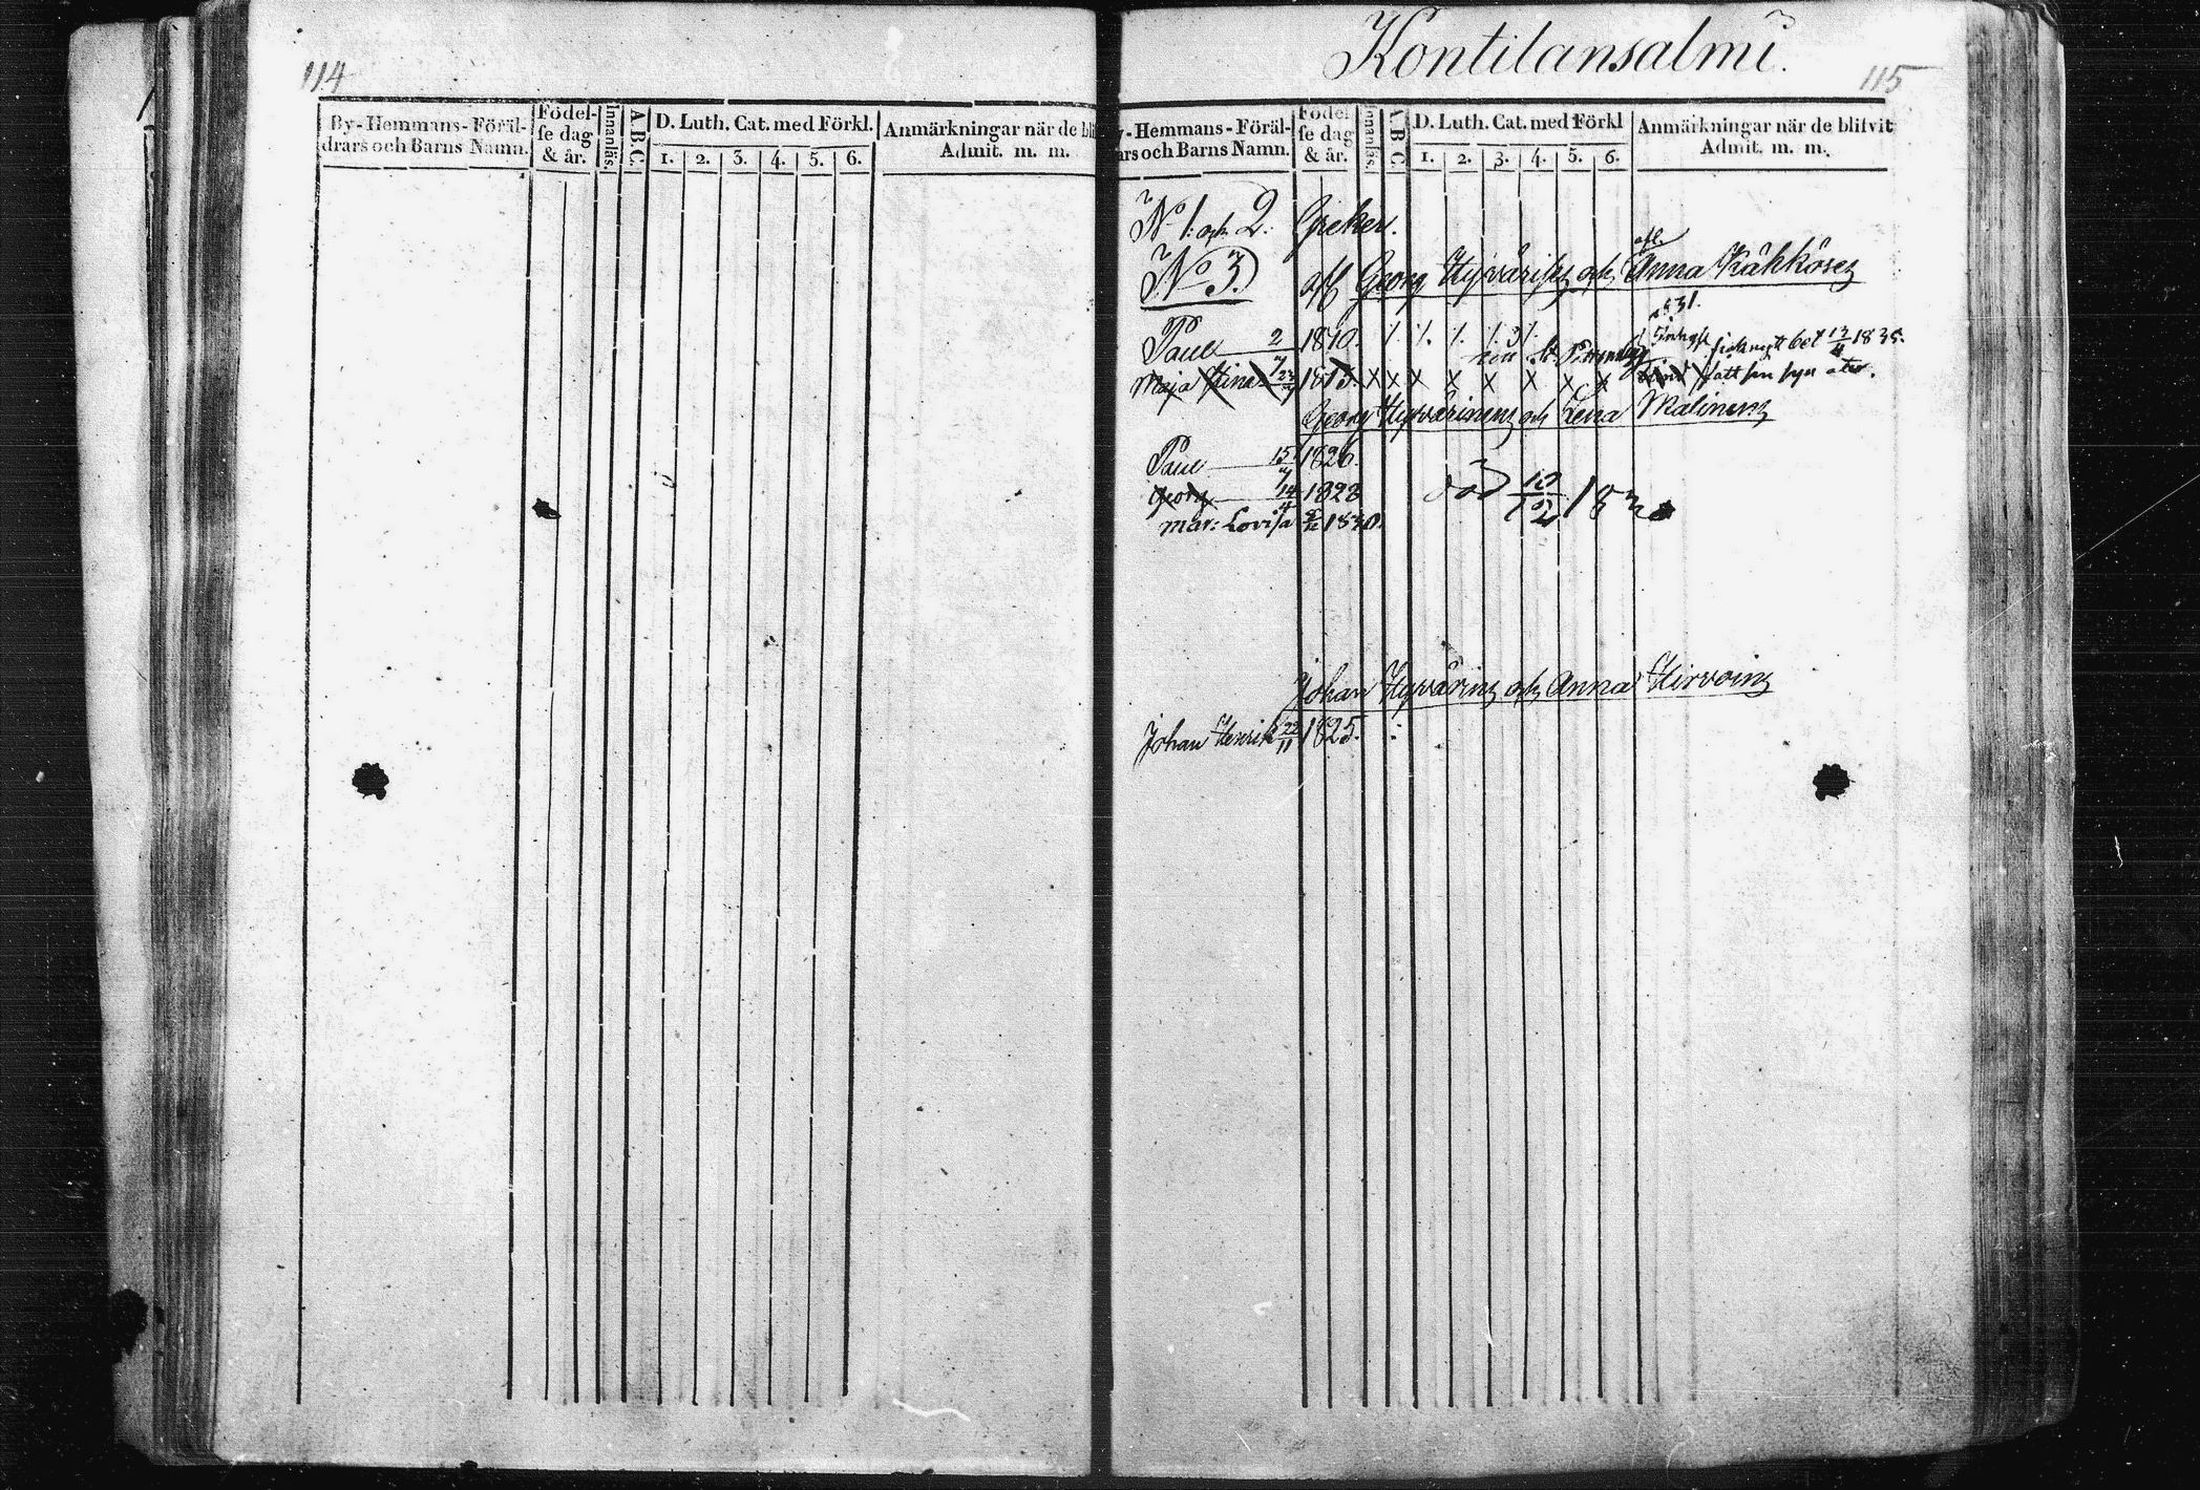 114
By-Hemmans-Föräl-
drars och Barns Namn.
Födel-
se dag
& år.
Innanläs.
A.B.C.
D. Luth. Cat. med Förkl.
1. 2. 3. 4. 5. 6.
Anmärkningar när de bli
Admit. m. m.
Kontilansalmi.
115
y-Hemmans-Föräl-
ars och Barns Namn.
Födel-
se dag
& år.
Innanläs.
A B C
D. Luth. Cat. med Förkl
1. 2. 3. 4. 5. 6.
Anmärkningar när de blifvit
Admit. m. m.
No 1: och 2: Greker.
No 3.
Georg Hyväri och Anna Kähkösez
1831.
Paul 2/7 1810.
1835.
Maja Stina 23/7 1815. x x x x x x x x x
Georg Hyvärinenz och Lena Malinenz
Paul 15/7 1826.
Georg 14/4 1828 död
Mar: Lovisa 1830.
Johan Hyvärinz och Anna Hirvoinz
Johan Henrik 22/11 1825.